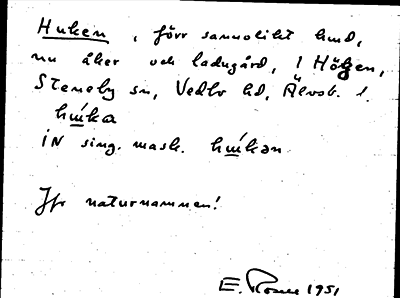 Huken, förr sannolikt hmd,
nu åker och ladugård, i Högen,
Steneby sn, Vedbo hd, Älvsb. l.
huka
IN sing. mask. hukan
Jfr naturnamnen!
E. 1951